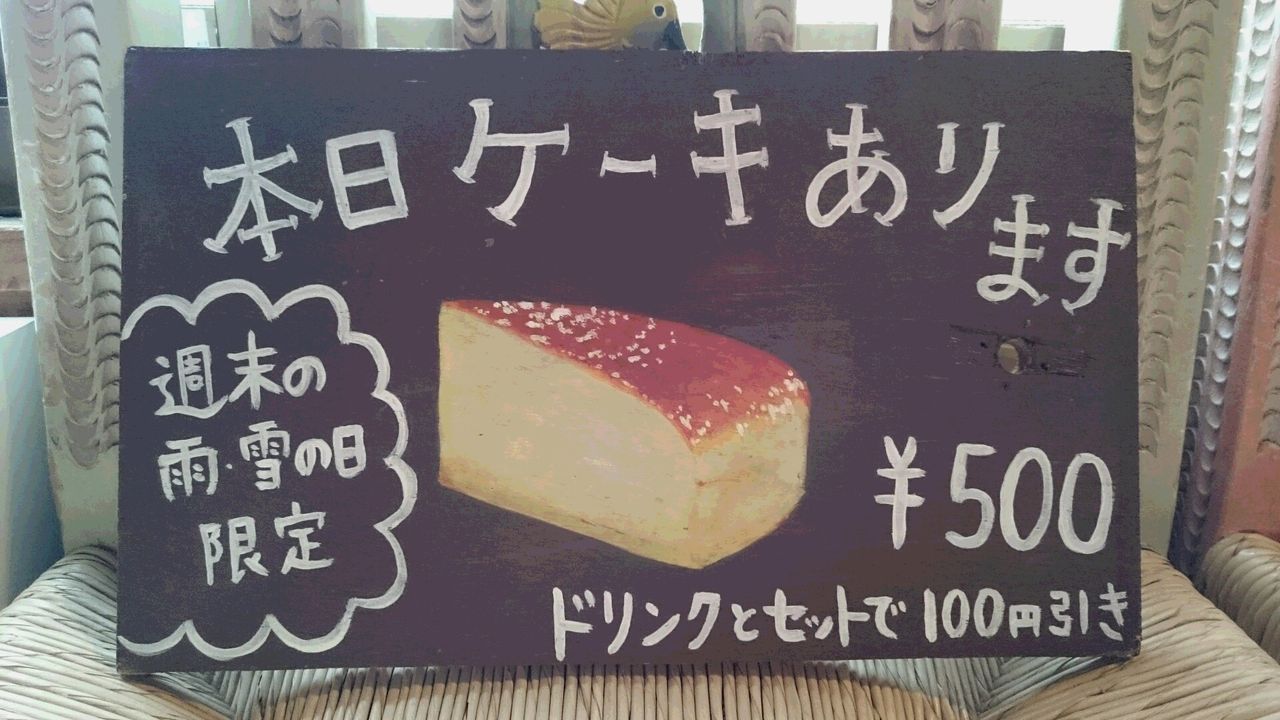 本日ケーキあります
週末の
雨・雪の日
限定
¥500
ドリンクとセットで100円引き